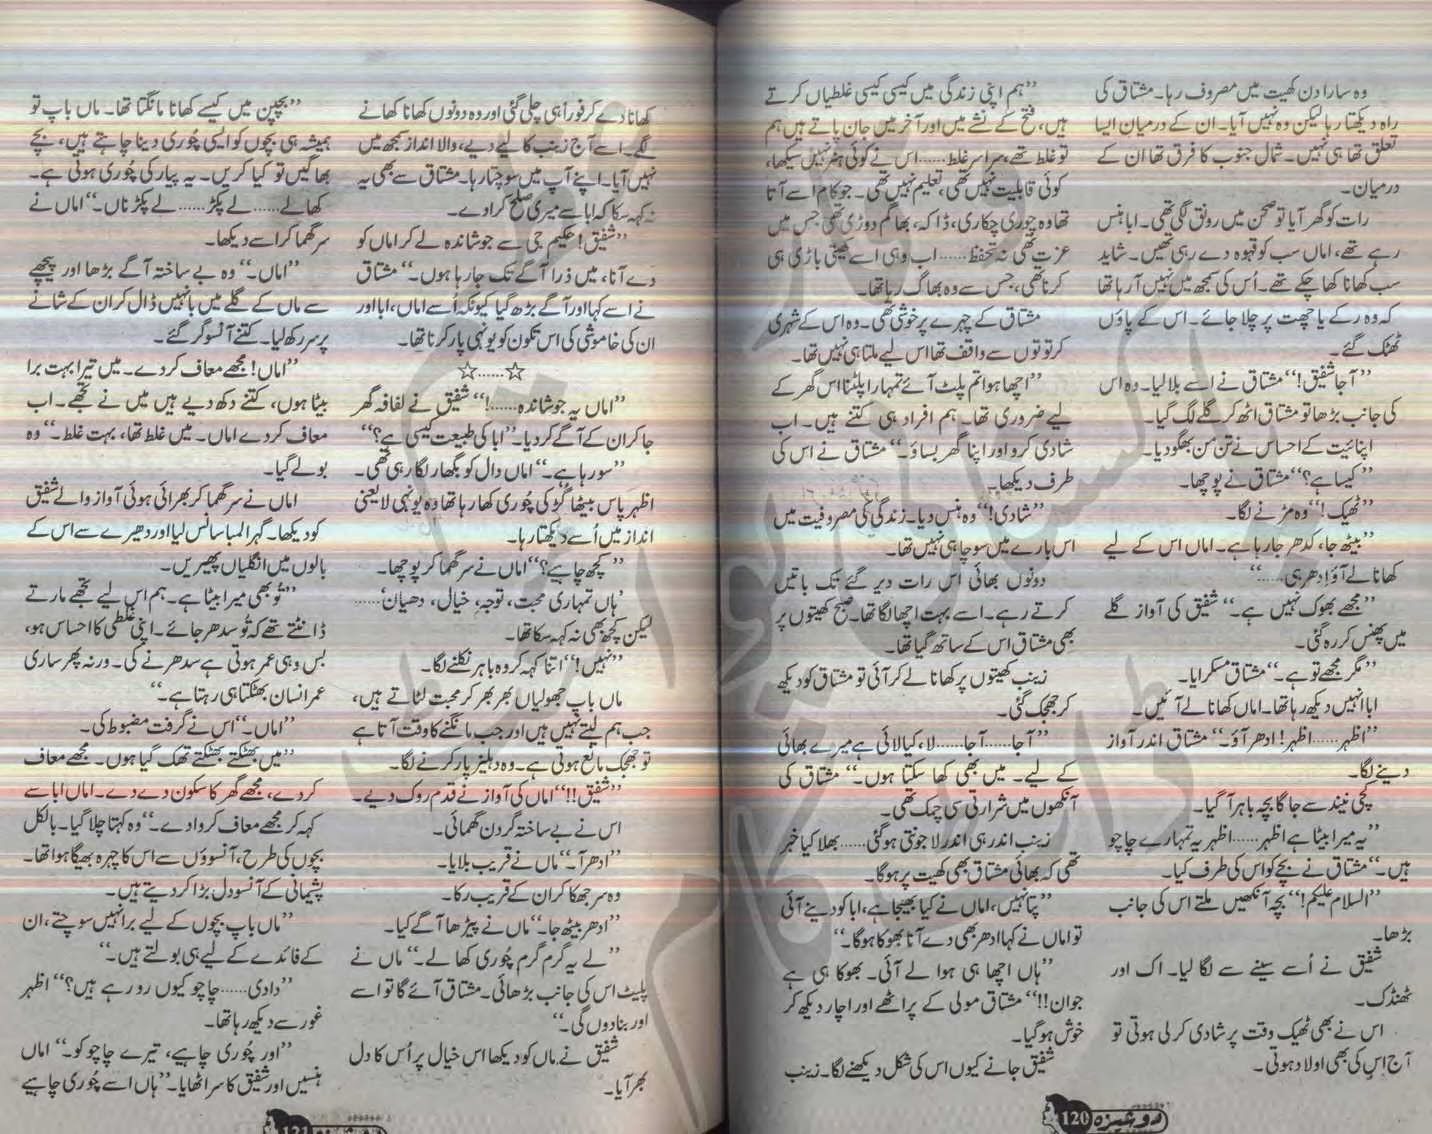 وہ سارا دن کھیت میں مصروف رہا۔ مشتاق کی
راہ دیکھتا رہا لیکن وہ نہیں آیا۔ ان کے درمیان ایسا
تعلق تھا ہی نہیں۔ شمال جنوب کا فرق تھا ان کے
درمیان۔
رات کو گھر آیا تو صحن میں رونق لگی تھی۔ ابا ہنس
رہے تھے، اماں سب کو قہوہ دے رہی تھیں۔ شاید
سب کھانا کھا چکے تھے۔ اُس کی سمجھ میں نہیں آ رہا تھا
کہ وہ رکے یا چھت پر چلا جائے۔ اس کے پاؤں
ٹھٹک گئے۔
’’آ جا شفیق!‘‘ مشتاق نے اسے بلا لیا۔ وہ اس
کی جانب بڑھا تو مشتاق اٹھ کر گلے لگ گیا۔
اپنائیت کے احساس نے تن من بھگو دیا۔
’’کیسا ہے؟‘‘ مشتاق نے پوچھا۔
’’ٹھیک!‘‘ وہ مڑنے لگا۔
’’بیٹھ جا، کدھر جا رہا ہے۔ اماں اس کے لیے
کھانا لے آؤ ادھر ہی.....‘‘
’’مجھے بھوک نہیں ہے۔‘‘ شفیق کی آواز گلے
میں پھنس کر رہ گئی۔
’’مگر مجھے تو ہے۔‘‘ مشتاق مسکرایا۔
ابا انہیں دیکھ رہا تھا۔ اماں کھانا لے آئیں۔
’’اظہر......اظہر! ادھر آؤ۔‘‘ مشتاق اندر آواز
دینے لگا۔
کچی نیند سے جاگا بچہ باہر آ گیا۔
’’یہ میرا بیٹا ہے اظہر......اظہر یہ تمہارے چاچو
ہیں۔‘‘ مشتاق نے بچے کو اس کی طرف کیا۔
’’السلام علیکم!‘‘ بچہ آنکھیں ملتے اس کی جانب
بڑھا۔
شفیق نے اُسے سینے سے لگا لیا۔ اک اور
ٹھنڈک۔
اس نے بھی ٹھیک وقت پر شادی کر لی ہوتی تو
آج اس کی بھی اولاد ہوتی۔
’’ہم اپنی زندگی میں کیسی کیسی غلطیاں کرتے
ہیں، فتح کے نشے میں اور آخر میں جان پاتے ہیں ہم
تو غلط تھے، سراسر غلط......اس نے کوئی ہنر نہیں سیکھا،
کوئی قابلیت نہیں تھی، تعلیم نہیں تھی۔ جو کام اسے آتا
تھا وہ چوری چکاری، ڈاکہ، بھاگم دوڑی تھی جس میں
عزت تھی نہ تحفظ......اب وہی اسے کھیتی باڑی ہی
کرنا تھی، جس سے وہ بھاگ رہا تھا۔
مشتاق کے چہرے پر خوشی تھی۔ وہ اس کے شہری
کرتوتوں سے واقف تھا اس لیے ملتا ہی نہیں تھا۔
’’اچھا ہوا تم پلٹ آئے تمہارا پلٹنا اس گھر کے
لیے ضروری تھا۔ ہم افراد ہی کتنے ہیں۔ اب
شادی کرو اور اپنا گھر بساؤ۔‘‘ مشتاق نے اس کی
طرف دیکھا۔
’’شادی!‘‘ وہ ہنس دیا۔ زندگی کی مصروفیت میں
اس بارے میں سوچا ہی نہیں تھا۔
دونوں بھائی اس رات دیر گئے تک باتیں
کرتے رہے۔ اسے بہت اچھا لگا تھا۔ صبح کھیتوں پر
بھی مشتاق اس کے ساتھ گیا تھا۔
زینب کھیتوں پر کھانا لے کر آئی تو مشتاق کو دیکھ
کر جھجک گئی۔
’’آ جا......آ جا......لا، کیا لائی ہے میرے بھائی
کے لیے۔ میں بھی کھا سکتا ہوں۔‘‘ مشتاق کی
آنکھوں میں شرارتی سی چمک تھی۔
زینب اندر ہی اندر لاجونتی ہو گئی......بھلا کیا خبر
تھی کہ بھائی مشتاق بھی کھیت پر ہو گا۔
’’پتا نہیں، اماں نے کیا بھیجا ہے، ابا کو دینے آئی
تو اماں نے کہا ادھر بھی دے آنا بھوکا ہو گا۔‘‘
’’ہاں اچھا ہی ہوا لے آئی۔ بھوکا ہی ہے
جوان!!‘‘ مشتاق مولی کے پراٹھے اور اچار دیکھ کر
خوش ہو گیا۔
شفیق جانے کیوں اس کی شکل دیکھنے لگا۔ زینب
120 دوشیزہ
کھانا دے کر فوراً ہی چلی گئی اور وہ دونوں کھانا کھانے
لگے۔ اسے آج زینب کا لیے دیے، والا انداز سمجھ میں
نہیں آیا۔ اپنے آپ میں سوچتا رہا۔ مشتاق سے بھی یہ
نہ کہہ سکا کہ ابا سے میری صلح کرا دے۔
’’شفیق! حکیم جی سے جوشاندہ لے کر اماں کو
دے آنا، میں ذرا آگے تک جا رہا ہوں۔‘‘ مشتاق
نے اسے کہا اور آگے بڑھ گیا کیونکہ اُسے اماں، ابا اور
ان کی خاموشی کی اس تکون کو یونہی پار کرنا تھا۔
☆......☆
’’اماں یہ جوشاندہ......!‘‘ شفیق نے لفافہ گھر
جا کر ان کے آگے کر دیا۔ ’’ابا کی طبیعت کیسی ہے؟‘‘
’’سو رہا ہے۔‘‘ اماں دال کو بگھار لگا رہی تھی۔
اظہر پاس بیٹھا گڑ کی چُوری کھا رہا تھا وہ یونہی لایعنی
انداز میں اُسے دیکھتا رہا۔
’’کچھ چاہیے؟‘‘ اماں نے سر گھما کر پوچھا۔
’ہاں تمہاری محبت، توجہ، خیال، دھیان‘......
لیکن کچھ بھی نہ کہہ سکا تھا۔
’’نہیں!‘‘ اتنا کہہ کر وہ باہر نکلنے لگا۔
ماں باپ جھولیاں بھر بھر کر محبت لٹاتے ہیں،
جب ہم لیتے نہیں ہیں اور جب مانگنے کا وقت آتا ہے
تو جھجک مانع ہوتی ہے۔ وہ دہلیز پار کرنے لگا۔
’’شفیق!!‘‘ اماں کی آواز نے قدم روک دیے۔
اس نے بے ساختہ گردن گھمائی۔
’’ادھر آ۔‘‘ ماں نے قریب بلایا۔
وہ سر جھکا کر ان کے قریب رکا۔
’’ادھر بیٹھ جا۔‘‘ ماں نے پیڑھا آگے کیا۔
’’لے یہ گرم گرم چُوری کھا لے۔‘‘ ماں نے
پلیٹ اس کی جانب بڑھائی۔ مشتاق آئے گا تو اسے
اور بنا دوں گی۔‘‘
شفیق نے ماں کو دیکھا اس خیال پر اُس کا دل
بھر آیا۔
’’بچپن میں کیسے کھانا مانگتا تھا۔ ماں باپ تو
ہمیشہ ہی بچوں کو ایسی چُوری دینا چاہتے ہیں، بچے
بھاگیں تو کیا کریں۔ یہ پیار کی چُوری ہوتی ہے۔
کھا لے......لے پکڑ......لے پکڑ ناں۔‘‘ اماں نے
سر گھما کر اسے دیکھا۔
’’اماں۔‘‘ وہ بے ساختہ آگے بڑھا اور پیچھے
سے ماں کے گلے میں بانہیں ڈال کر ان کے شانے
پر سر رکھ لیا۔ کتنے آنسو گر گئے۔
’’اماں! مجھے معاف کر دے۔ میں تیرا بہت برا
بیٹا ہوں، کتنے دکھ دیے ہیں میں نے تجھے۔ اب
معاف کر دے اماں۔ میں غلط تھا، بہت غلط۔‘‘ وہ
بولے گیا۔
اماں نے سر گھما کر بھرائی ہوئی آواز والے شفیق
کو دیکھا۔ گہرا لمبا سانس لیا اور دھیرے سے اس کے
بالوں میں انگلیاں پھیریں۔
’’تُو بھی میرا بیٹا ہے۔ ہم اس لیے تجھے مارتے
ڈانٹتے تھے کہ تُو سدھر جائے۔ اپنی غلطی کا احساس ہو،
بس وہی عمر ہوتی ہے سدھرنے کی۔ ورنہ پھر ساری
عمر انسان بھٹکتا ہی رہتا ہے۔‘‘
’’اماں۔‘‘ اس نے گرفت مضبوط کی۔
’’میں بھٹکتے بھٹکتے تھک گیا ہوں۔ مجھے معاف
کر دے، مجھے گھر کا سکون دے دے۔ اماں ابا سے
کہہ کر مجھے معاف کروا دے۔‘‘ وہ کہتا چلا گیا۔ بالکل
بچوں کی طرح، آنسوؤں سے اس کا چہرہ بھیگا ہوا تھا۔
پشیمانی کے آنسو دل بڑا کر دیتے ہیں۔
’’ماں باپ بچوں کے لیے برا نہیں سوچتے، ان
کے فائدے کے لیے ہی بولتے ہیں۔‘‘
’’دادی......چاچو کیوں رو رہے ہیں؟‘‘ اظہر
غور سے دیکھ رہا تھا۔
’’اور چُوری چاہیے، تیرے چاچو کو۔‘‘ اماں
ہنسیں اور شفیق کا سر اٹھایا۔ ’’ہاں اسے چُوری چاہیے
121